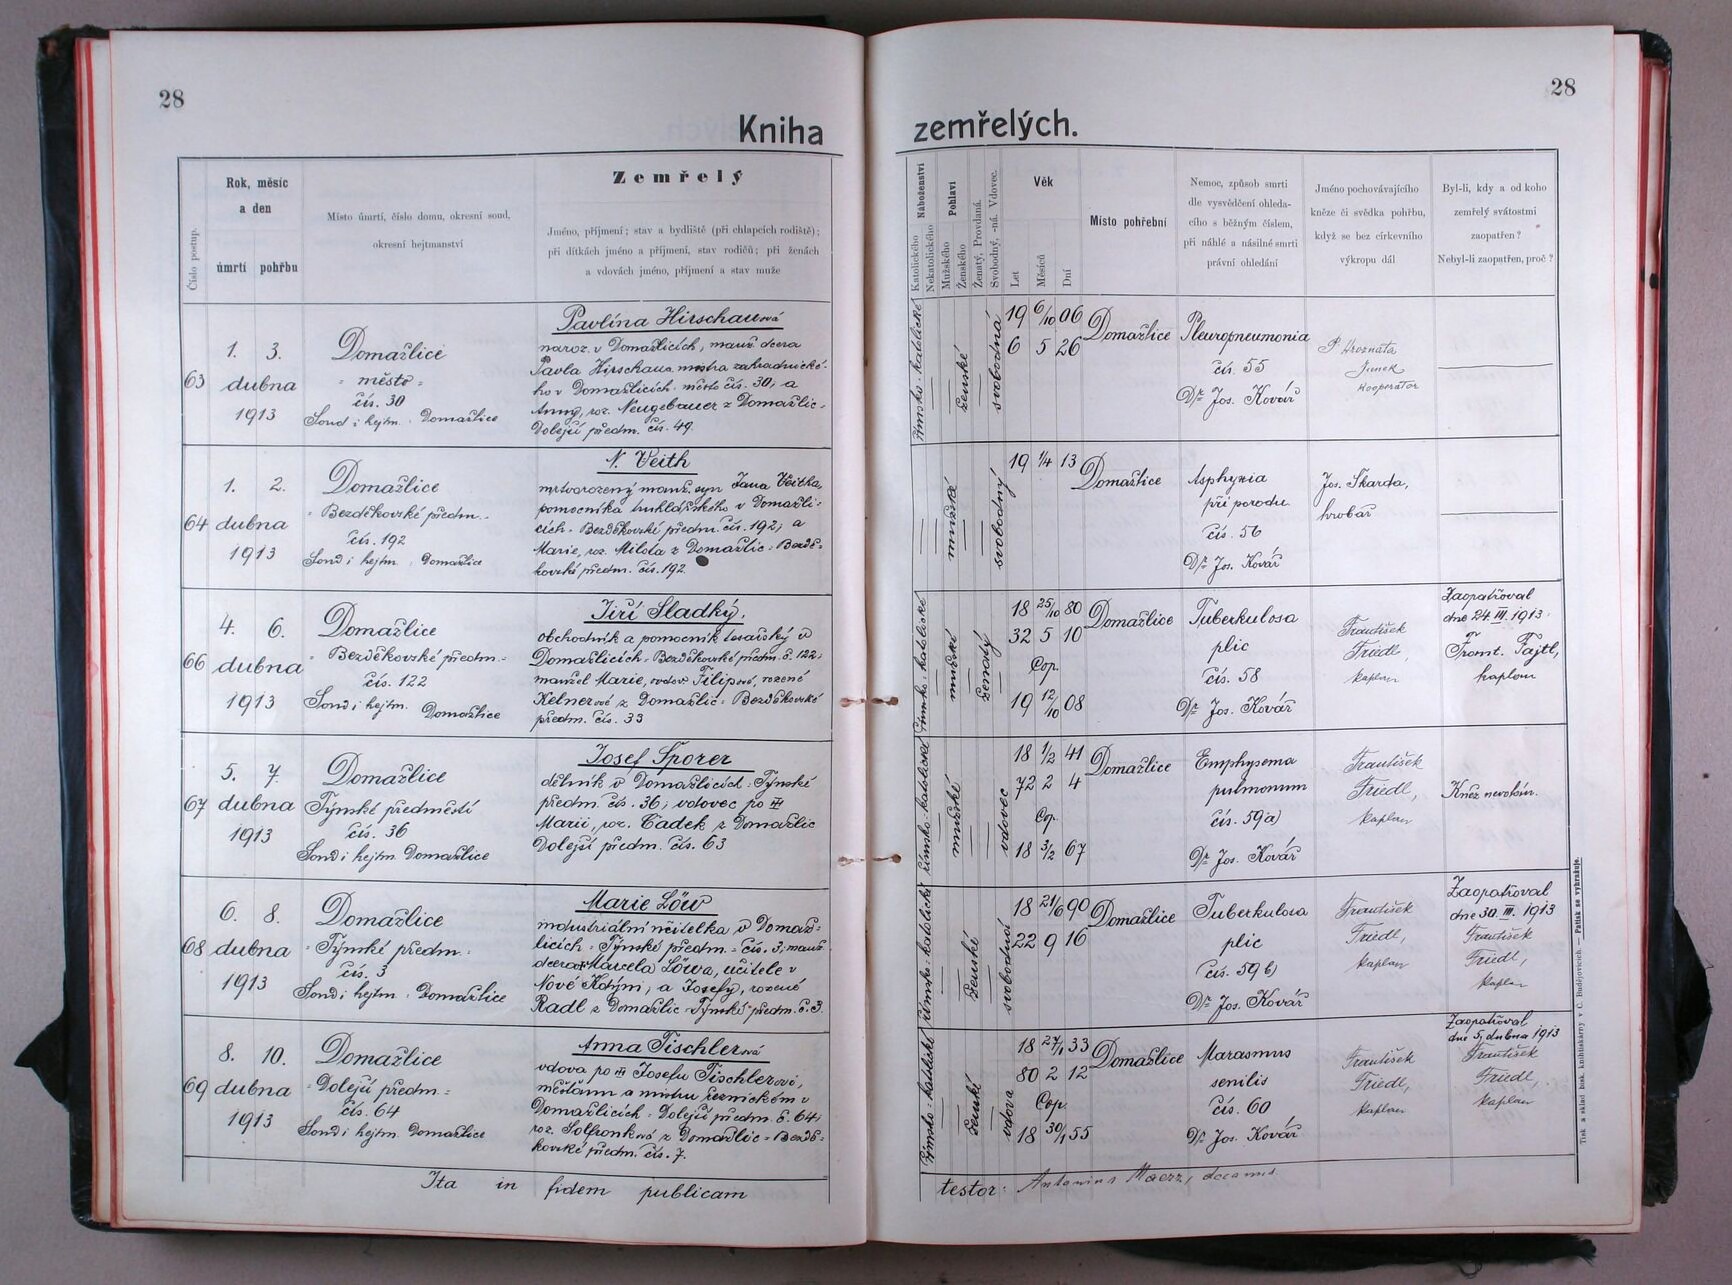 28
28
Kniha zemřelých.
Číslo postup.
Rok, měsíc
a den
úmrtí pohřbu
Místo úmrtí, číslo domu, okresní soud,
okresní hejtmanství
Zemřelý
Jméno, příjmení; stav a bydliště (při chlapcích rodiště);
při dítkách jméno a příjmení, stav rodičů; při ženách
a vdovách jméno, příjmení a stav muže
Náboženství
Katolického
Nekatolického
Pohlaví
Mužského
Ženského
Ženatý, Provdaná.
Svobodný, -ná. Vdovec.
Věk
Let
Měsíců
Dní
Místo pohřební
Nemoc, způsob smrti
dle vysvědčení ohleda-
cího s běžným číslem,
při náhlé a násilné smrti
právní ohledání
Jméno pochovávajícího
kněze či svědka pohřbu,
když se bez církevního
výkropu dál
Byl-li, kdy a od koho
zemřelý svátostmi
zaopatřen?
Nebyl-li zaopatřen, proč?
63
1. 3.
dubna
1913
Domažlice
- město -
čís. 30
Soud i hejtm. Domažlice
Pavlína Hirschauerová
naroz. v Domažlicích, manž. dcera
Pavla Hirschaua, mistra zahradnické-
ho v Domažlicích město čís. 30, a
Anny, roz. Neugebauer z Domažlic-
Dolejší předm. čís. 49.
římsko-katolické
ženské
svobodná
19 6/10 06
6 5 26
Domažlice
Pleuropneumonia
čís. 55
Dr Jos. Kovář
P. Hroznata
Junek
kooperator
64
1. 2.
dubna
1913
Domažlice
- Bezděkovské předm. -
čís. 192
Soud i hejtm. Domažlice
N. Veith
mrtvorozený manž. syn Jana Veitha,
pomocníka truhlářského v Domažli-
cích - Bezděkovské předm. čís. 192, a
Marie, roz. Milota z Domažlic - Bezdě-
kovské předm. čís. 192.
mužské
svobodný
19 1/4 13
Domažlice
Asphyxia
při porodu
čís. 56
Dr Jos. Kovář
Jos. Škarda,
hrobař
66
4. 6.
dubna
1913
Domažlice
- Bezděkovské předm. -
čís. 122
Soud i hejtm. Domažlice
Jiří Sladký,
obchodník a pomocník tesařský v
Domažlicích - Bezděkovské předm. č. 122;
manžel Marie, vdov. Filipové, rozené
Kelnerové z Domažlic - Bezděkovské
předm. čís. 33
římsko-katolické
mužské
ženatý
18 25/10 80
32 5 10
Cop.
19 12/10 08
Domažlice
Tuberkulosa
plic
čís. 58
Dr Jos. Kovář
František
Friedl,
kaplan
Zaopatřoval
dne 24 III. 1913.
Front. Tajtl,
kaplan
67
5. 7.
dubna
1913
Domažlice
Týnské předměstí
čís. 36
Soud i hejtm. Domažlice
Josef Šporer
dělník v Domažlicích - Týnské
předm. čís. 36; vdovec po III
Marii, roz. Čadek z Domažlic
Dolejší předm. čís. 63
římsko-katolické
mužské
vdovec
18 1/2 41
72 2 4
Cop.
18 3/2 67
Domažlice
Emphysema
pulmonum
čís. 59a)
Dr Jos. Kovář
František
Friedl,
kaplan
Kněz nevolán.
68
6. 8.
dubna
1913
Domažlice
- Týnské předm. -
čís. 3
Soud i hejtm. Domažlice
Marie Löw
industriální učitelka v Domaž-
licích - Týnské předm. - čís. 3; manž.
dcera Marcela Löwa, učitele v
Nové Kdýni, a Josefy, rozené
Radl z Domažlic - Týnské předm. č. 3.
římsko-katolické
ženské
svobodná
18 21/6 90
22 9 16
Domažlice
Tuberkulosa
plic
čís. 59b)
Dr Jos. Kovář
František
Friedl,
kaplan
Zaopatřoval
dne 30. III. 1913
František
Friedl,
kaplan
69
8. 10.
dubna
1913
Domažlice
- Dolejší předm. -
čís. 64
Soud i hejtm. Domažlice
Anna Tischlerová
vdova po III Josefu Tischlerovi,
měšťanu a mistru řeznickém v
Domažlicích - Dolejší předm. č. 64;
roz. Solfronková z Domažlic - Bezdě-
kovské předm. čís. 7.
římsko-katolické
ženské
vdova
18 27/1 33
80 2 12
Cop.
18 30/1 55
Domažlice
Marasmus
senilis
čís. 60
Dr Jos. Kovář
František
Friedl,
kaplan
Zaopatřoval
dne 5. dubna 1913
František
Friedl,
kaplan
Ita in fidem publicam
testor: Antonius Maerz, decanus.
Tisk a sklad bisk. knihtiskárny v Č. Budějovicích. — Patisk se vyhražuje.